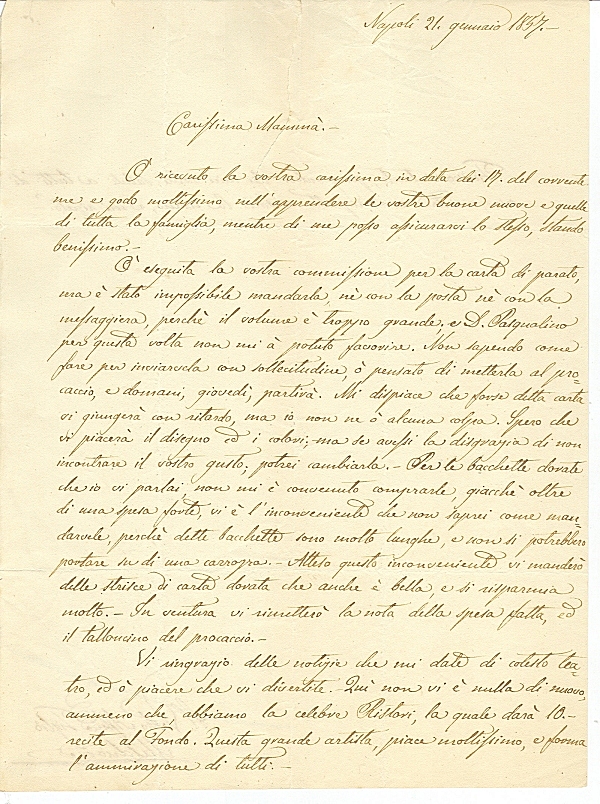 Napoli 21. gennaio 1857.–
Carissima Mammà.–
Ò ricevuto la vostra carissima in data dei 17. del corrente
me e godo moltissimo nell'apprendere le vostre buone nuove e quelle
di tutta la famiglia, mentre di me posso assicurarvi lo stesso, stando
benissimo.–
Ò eseguita la vostra commissione per la carta di parato,
ma è stato impossibile mandarla, nè con la posta nè con la
messaggiera, perchè il volume è troppo grande, e D. Pasqualino
per questa volta non mi à potuto favorire. Non sapendo come
fare per inviarvela con sollecitudine, ò pensato di metterla al pro=
caccio, e domani, giovedì, partirà. Mi dispiace che forse detta carta
vi giungerà con ritardo, ma io non ne ò alcuna colpa. Spero che
vi piacerà il disegno ed i colori; ma se avessi la disgrazia di non
incontrare il vostro gusto, potrei cambiarla.– Per le bacchette dorate
che io vi parlai, non mi è convenuto comprarle, giacchè oltre
di una spesa forte, vi è l'inconveniente che non saprei come man=
darvele, perchè dette bacchette sono molto lunghe, e non si potrebbero
portare su di una carrozza.– Atteso questo inconveniente vi manderò
delle strisce di carta dorata che anche è bella, e si risparmia
molto.– In ventura vi rimetterò la nota della spesa fatta, ed
il talloncino del procaccio.–
Vi ringrazio delle notizie che mi date di cotesto tea=
tro, ed ò piacere che vi divertite. Quì non vi è nulla di nuovo,
ammeno che, abbiamo la celebre Ristori, la quale darà 10.–
recite al Fondo. Questa grande artista, piace moltissimo, e forma
l'ammirazione di tutti.–